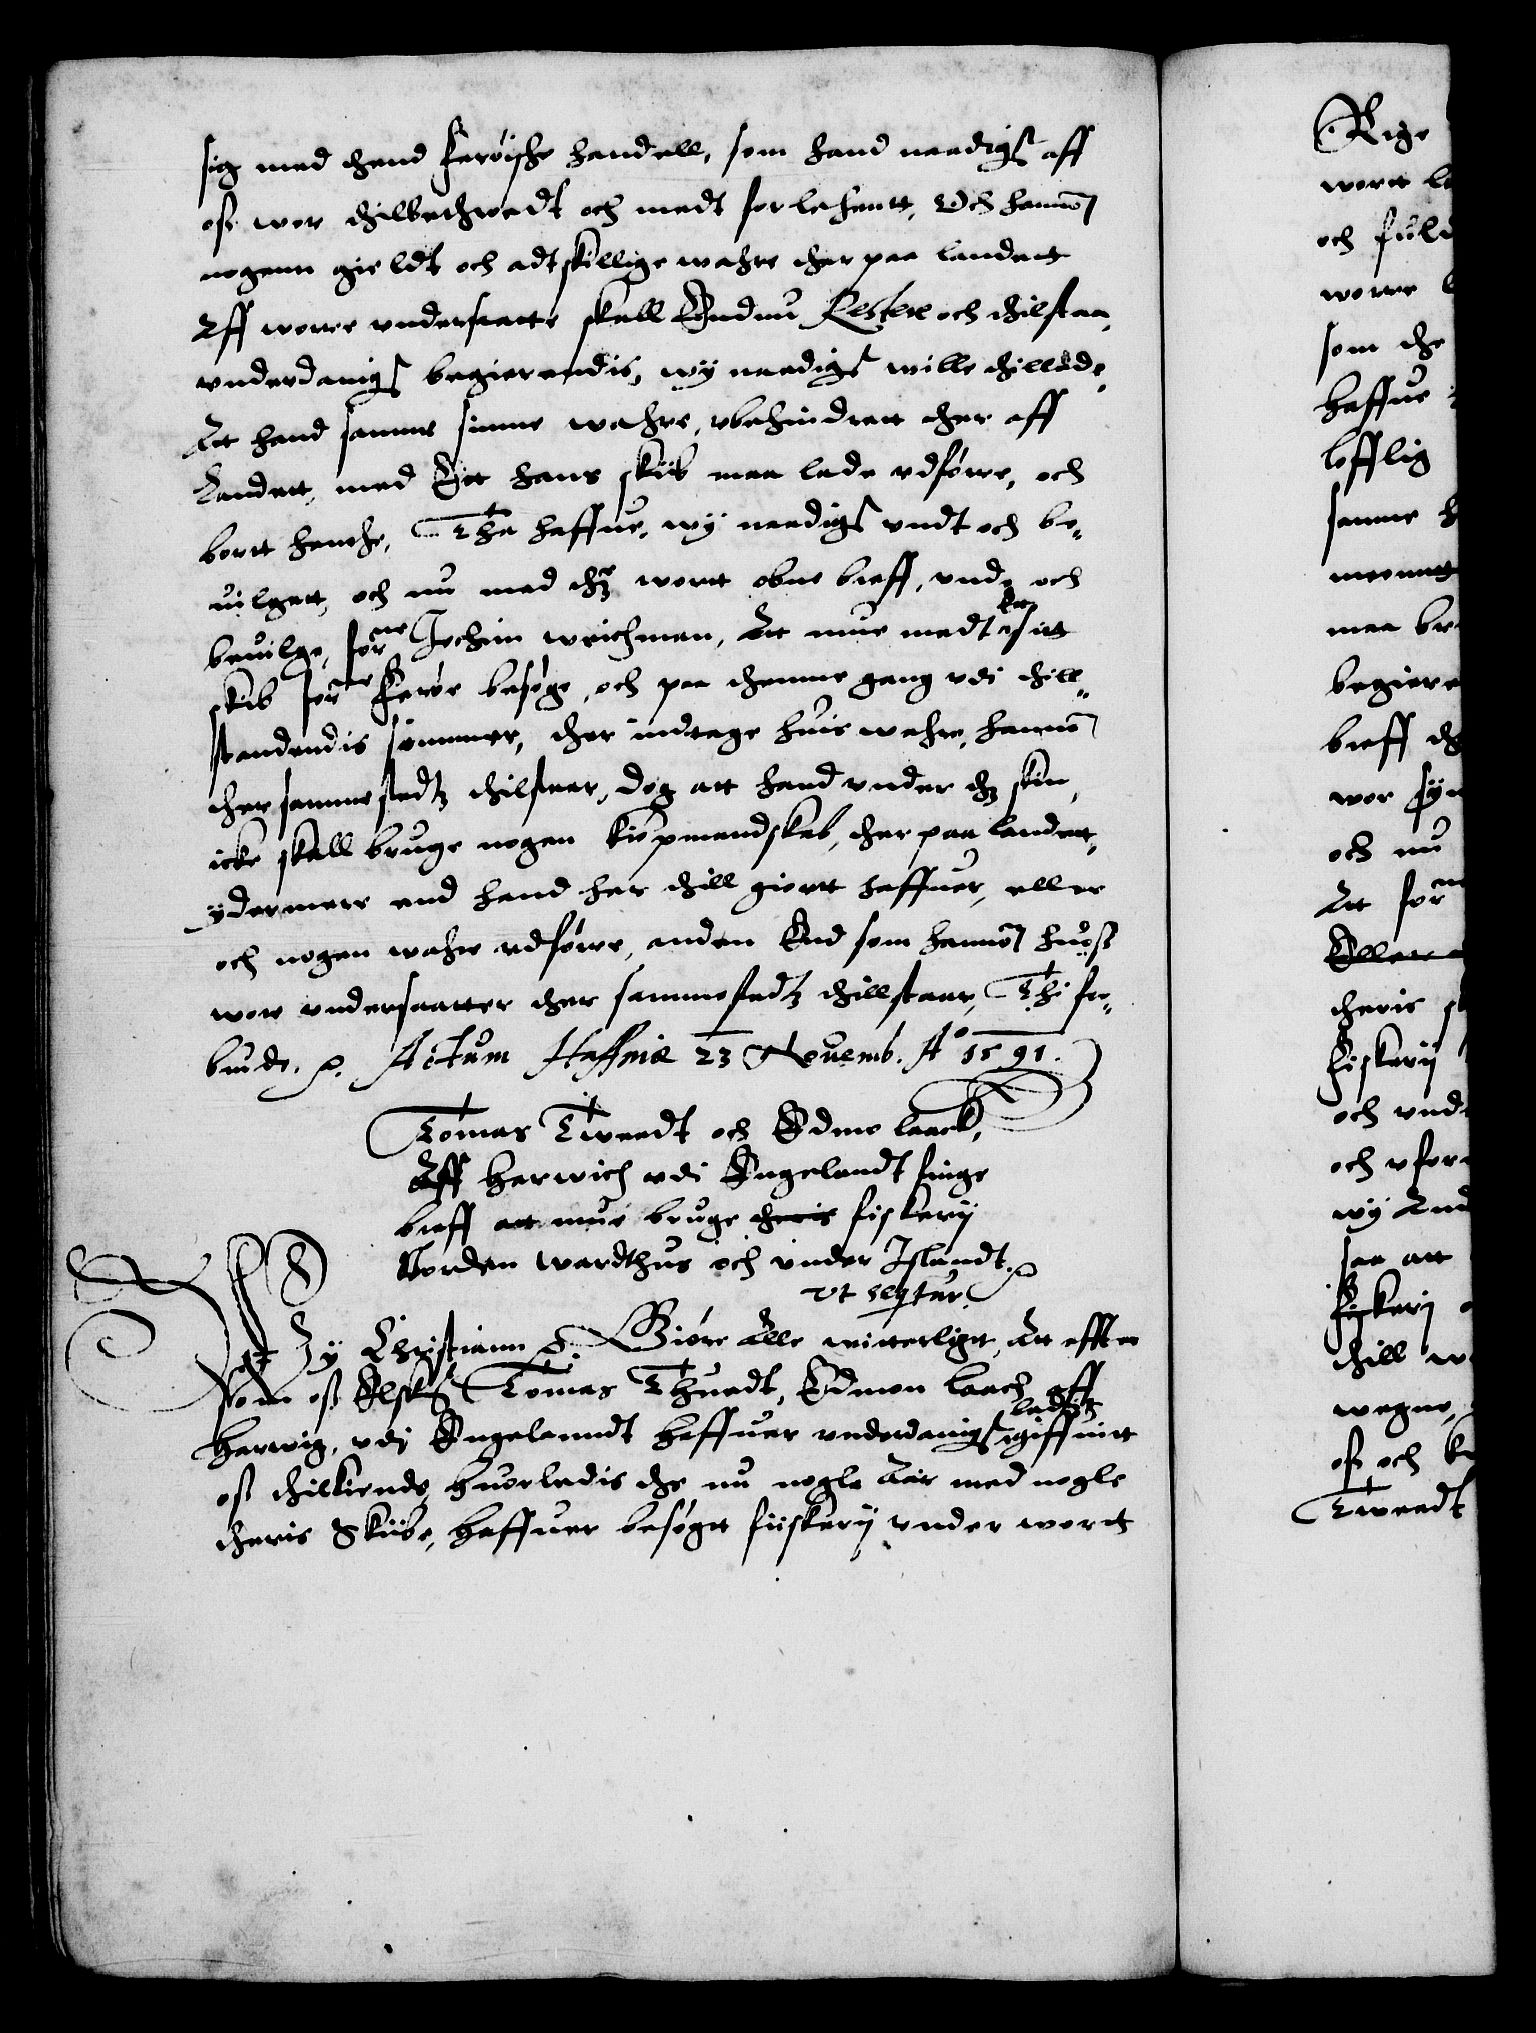 sig med thend Feröiske handell, som hand naadigst aff
oss wor thilbethrodt och medt forlehentt, Och hannom
nogenn gieldt och adtskillige wahre ther paa landett
Aff worre undersaatte skall Endnu Restere och thilstaa,
underdanigst begierendis, wy naadigst wille thillade,
Att hand samme sinne wahre, ubehindrett ther aff
Landett, med Ett hans skiib maa lade udföre, och
bortt hendte, Tha haffue, wy naadigst undt och be¬
uilgett, och nu med thette wortt obne breff, unde och
beuilge, forne Jochim Wichman, Att mue medt Ett sitt
skib forne Feröe besöge, och paa thenne gang udi thill¬
standendis sommer, ther indtage huis wahre, hannom
ther sammestedtz thilstaar, dog att hand under thz skin,
icke skall bruge nogen kiöpmandskab, ther paa landett,
ydermere end hand her thill giortt haffuer, eller
och nogen wahre udföre, anden End som hannom huoss
wore undersaatter ther sammestedtz thillstaar, Thi for¬
biude. etc. Actum Haffniæ 23 Nouemb. Ao 1591.
Tomas Twaadt och Edmo laack,
Aff Harwich udi Engelandt finge
breff att mue bruge theris fiskerij
Norden Wardthus och under Islandt.
Ut seqtur.
Wy Christiann etc. Giöre Alle witterligtt, Att effter
som oss Elskel. Tomas Thuadt, Edmon laach aff
Harwig, udj Engelanndt haffuer underdanigst ladet giffuitt
oss thilkiende, huorledis the nu nogle Aar med nogle
theris Skibe, haffuer besögtt fiiskerij under wortt
Rige
wortt
och fuld
worre
som the
haffue
löfflig
samme
menntt
maa
begiere
breff
wor
och nu
Att forne
Eller
theris
fiskerij
och und
och ufor
wy And
saa att
fiskerj
thill
wegne,
oss och
Tweedt